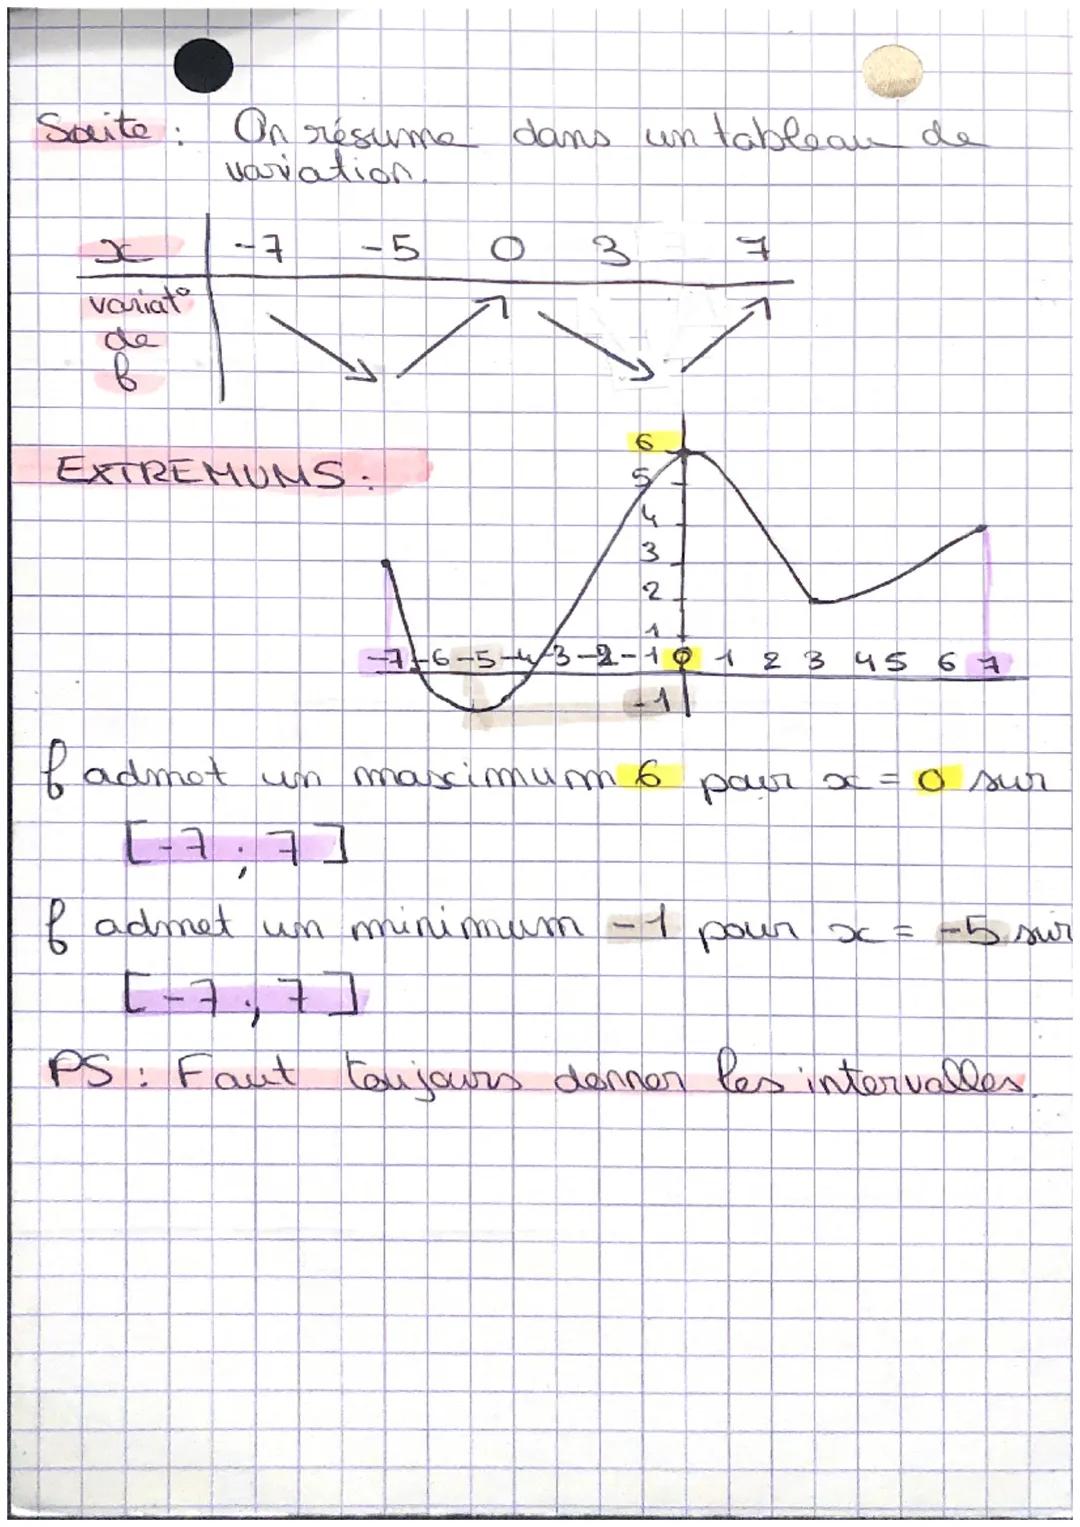 Suite : On résume dans un tableau de
variation.
x -7 -5 0 3 7
variat°
de
f
EXTREMUMS :
6
5
4
3
2
1
-7 -6 -5 -4 -3 -2 -1 0 1 2 3 4 5 6 7
-1
f admet un maximum 6 pour x = 0 sur
[-7 ; 7]
f admet un minimum -1 pour x = -5 sur
[-7 ; 7]
PS : Faut toujours donner les intervalles.